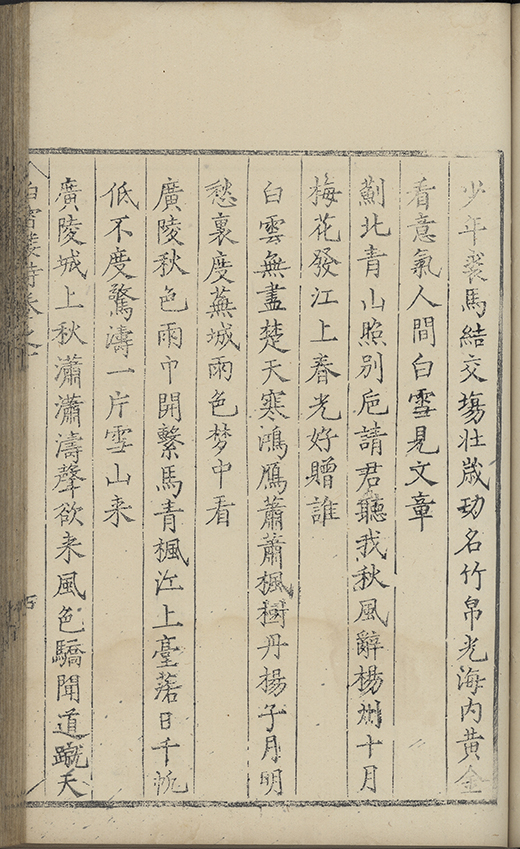 少年裘馬結交塲壯歲功名竹帛光海内黄金
看意氣人間白雪見文章
薊北青山照别巵請君聽我秋風辭楊州十月
梅花發江上春光好贈誰
白雲無盡楚天寒鴻鴈蕭蕭楓樹丹揚子月明
愁裏度蕪城雨色梦中看
廣陵秋色雨中開繫馬青楓江上臺落日千帆
低不度驚濤一片雪山来
廣陵城上秋瀟瀟濤聲欲来風色驕聞道蹴天
白雪樓詩卷之十